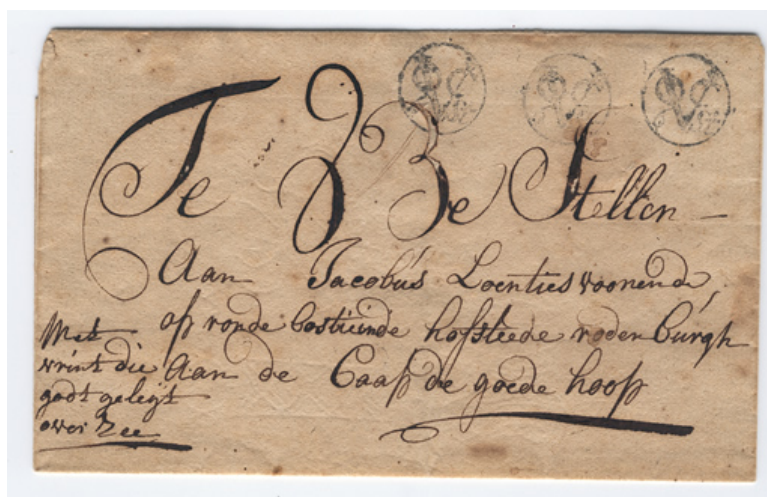 Te Be Stellen
Aan Jacobus Loenties woonende
op ronde bostuinde hofsteede roden Burgh
Aan de Caap de goede hoop
Met
vrint die
godt geleyt
over Zee